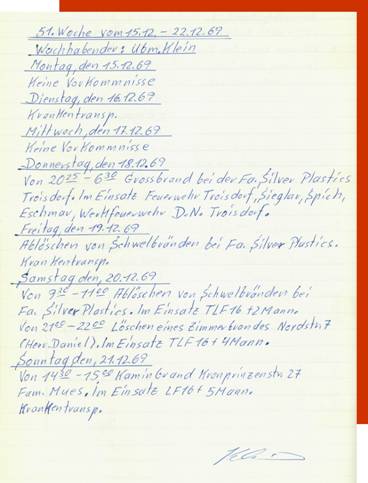 51. Woche vom 15.12. – 22.12.69
Wachhabender: Ubm. Klein
Montag, den 15.12.69
Keine Vorkommnisse
Dienstag, den 16.12.69
Krankentransp.
Mittwoch, den 17.12.69
Keine Vorkommnisse
Donnerstag, den 18.12.69
Von 20 25 – 6 30 Grossbrand bei der Fa. Silver Plastics
Troisdorf. Im Einsatz Feuerwehr Troisdorf, Sieglar, Spich,
Eschmar, Werkfeuerwehr D.N. Troisdorf.
Freitag, den 19.12.69
Ablöschen von Schwelbränden bei Fa. Silver Plastics.
Krankentransp.
Samstag, den, 20.12.69
Von 9 30 – 11 00 Ablöschen von Schwelbränden bei
Fa. Silver Plastics. Im Einsatz TLF 16 + 2 Mann.
Von 21 00 – 22 00 Löschen eines Zimmerbrandes Nordstr. 7
(Herr. Daniel). Im Einsatz TLF 16 + 4 Mann.
Sonntag den, 21.12.69
Von 14 30 – 15 00 Kaminbrand Kronprinzenstr. 27
Fam. Mues. Im Einsatz LF 16 + 5 Mann.
Krankentransp.
Klein